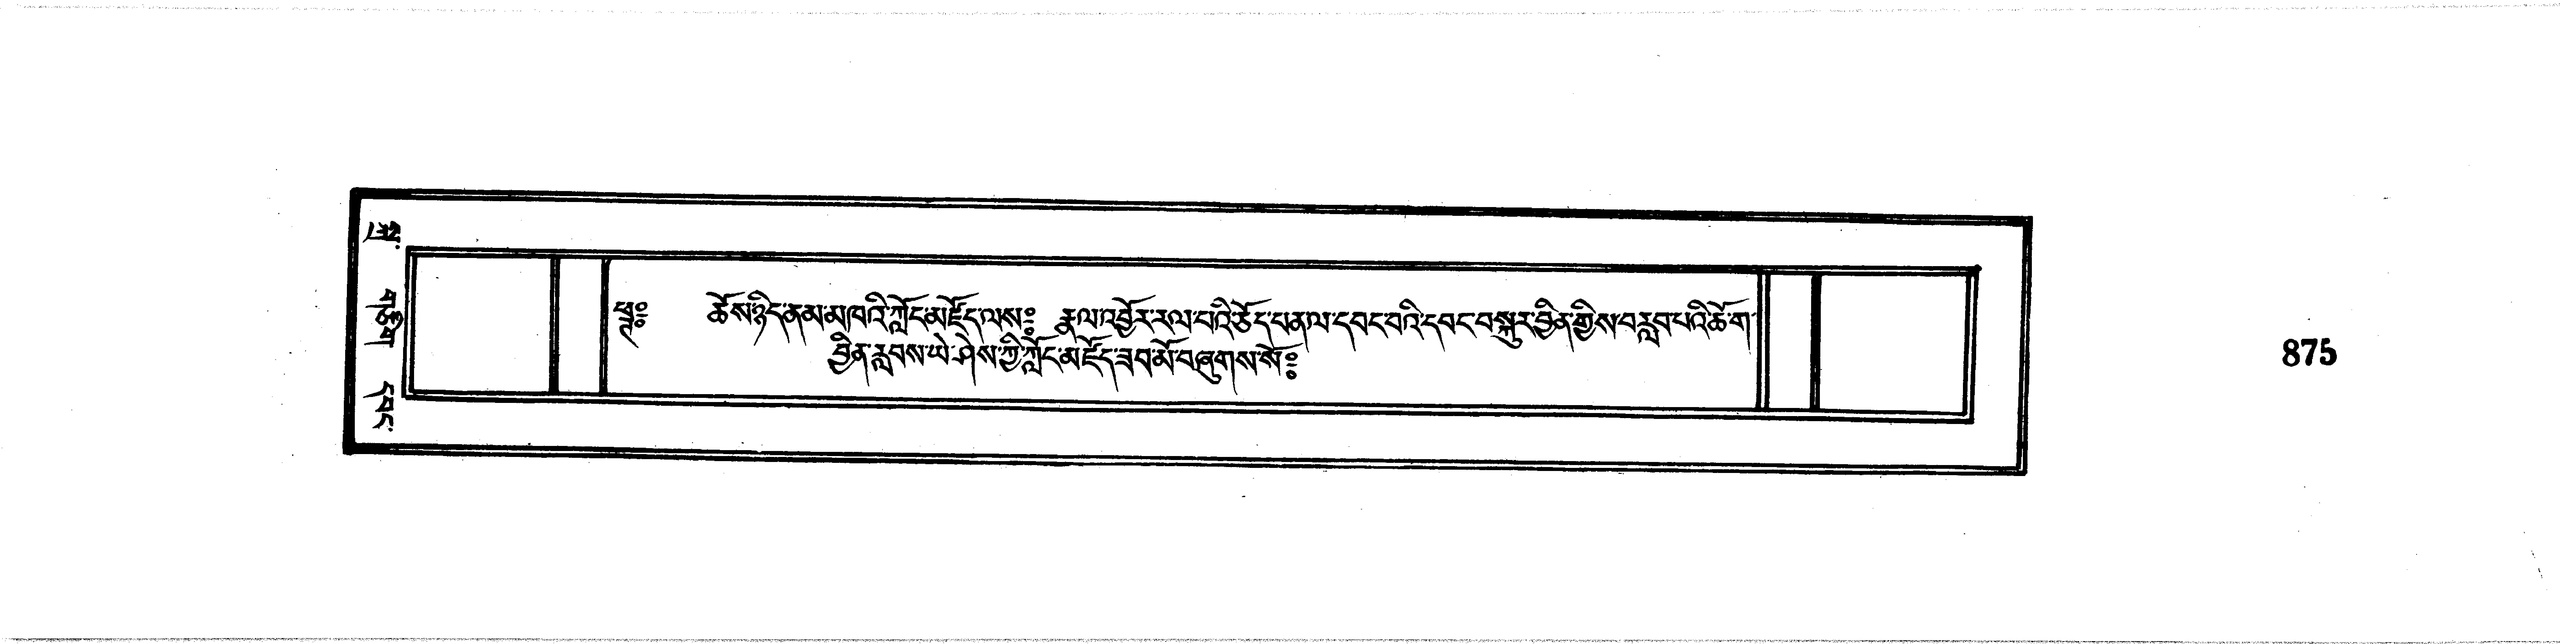 སྐྱ་ གཅིག དབང་
ཕྲཱྀ༔ ཆོས་ཉིད་ནམ་མཁའི་ཀློང་མཛོད་ལས༔ རྣལ་འབྱོར་རལ་པའི་ཅོད་པན་ལ་དབང་བའི་དབང་བསྐུར་བྱིན་གྱིས་བརླབ་པའི་ཆོ་ག
བྱིན་རླབས་ཡེ་ཤེས་ཀྱི་ཀློང་མཛོད་ཟབ་མོ་བཞུགས་སོ༔
875